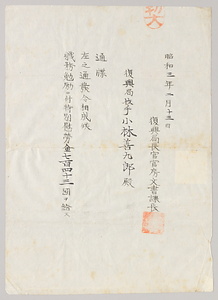 昭和三年一月十三日
復興局長官官房文書課長
復興局技手小林善九郎殿
通牒
左之通發令相成候
職務勉勵ニ付特別慰勞金七百四十三圓ヲ給ス